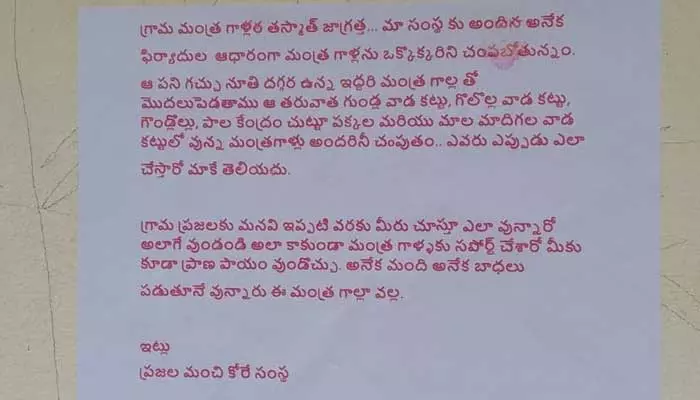 గ్రామ మంత్ర గాళ్లర తస్మాత్ జాగ్రత్త... మా సంస్థ కు అందిన అనేక
ఫిర్యాదుల ఆధారంగా మంత్ర గాళ్లను ఒక్కొక్కరిని చంపబోతున్నం.
ఆ పని గచ్చు నూతి దగ్గర ఉన్న ఇద్దరి మంత్ర గాల్ల తో
మొదలుపెడతాము ఆ తరువాత గుండ్ల వాడ కట్టు, గొల్లొల్ల వాడ కట్టు,
గౌండ్లోల్లు, పాల కేంద్రం చుట్టూ పక్కల మరియు మాల మాదిగల వాడ
కట్టులో వున్న మంత్రగాళ్లు అందరినీ చంపుతం.. ఎవరు ఎప్పుడు ఎలా
చేస్తారో మాకే తెలియదు.
గ్రామ ప్రజలకు మనవి ఇప్పటి వరకు మీరు చూస్తూ ఎలా వున్నారో
అలాగే వుండండి అలా కాకుండా మంత్ర గాళ్ళకు సపోర్ట్ చేశారో మీకు
కూడా ప్రాణ పాయం వుండొచ్చు. అనేక మంది అనేక బాధలు
పడుతూనే వున్నారు ఈ మంత్ర గాల్లా వల్ల.
ఇట్లు
ప్రజల మంచి కోరే సంస్థ